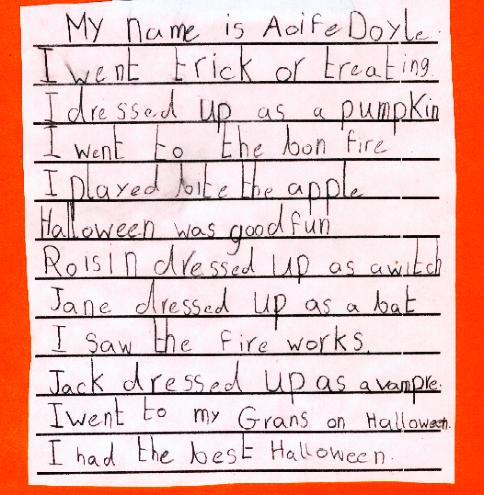 My name is Aoife Doyle.
I went trick or treating.
I dressed up as a pumpkin
I went to the bon fire
I played bite the apple
Halloween was good fun
Roisin dressed up as a witch
Jane dressed up as a bat
I saw the fire works.
Jack dressed up as a vampire.
I went to my Grans on Halloween.
I had the best Halloween.